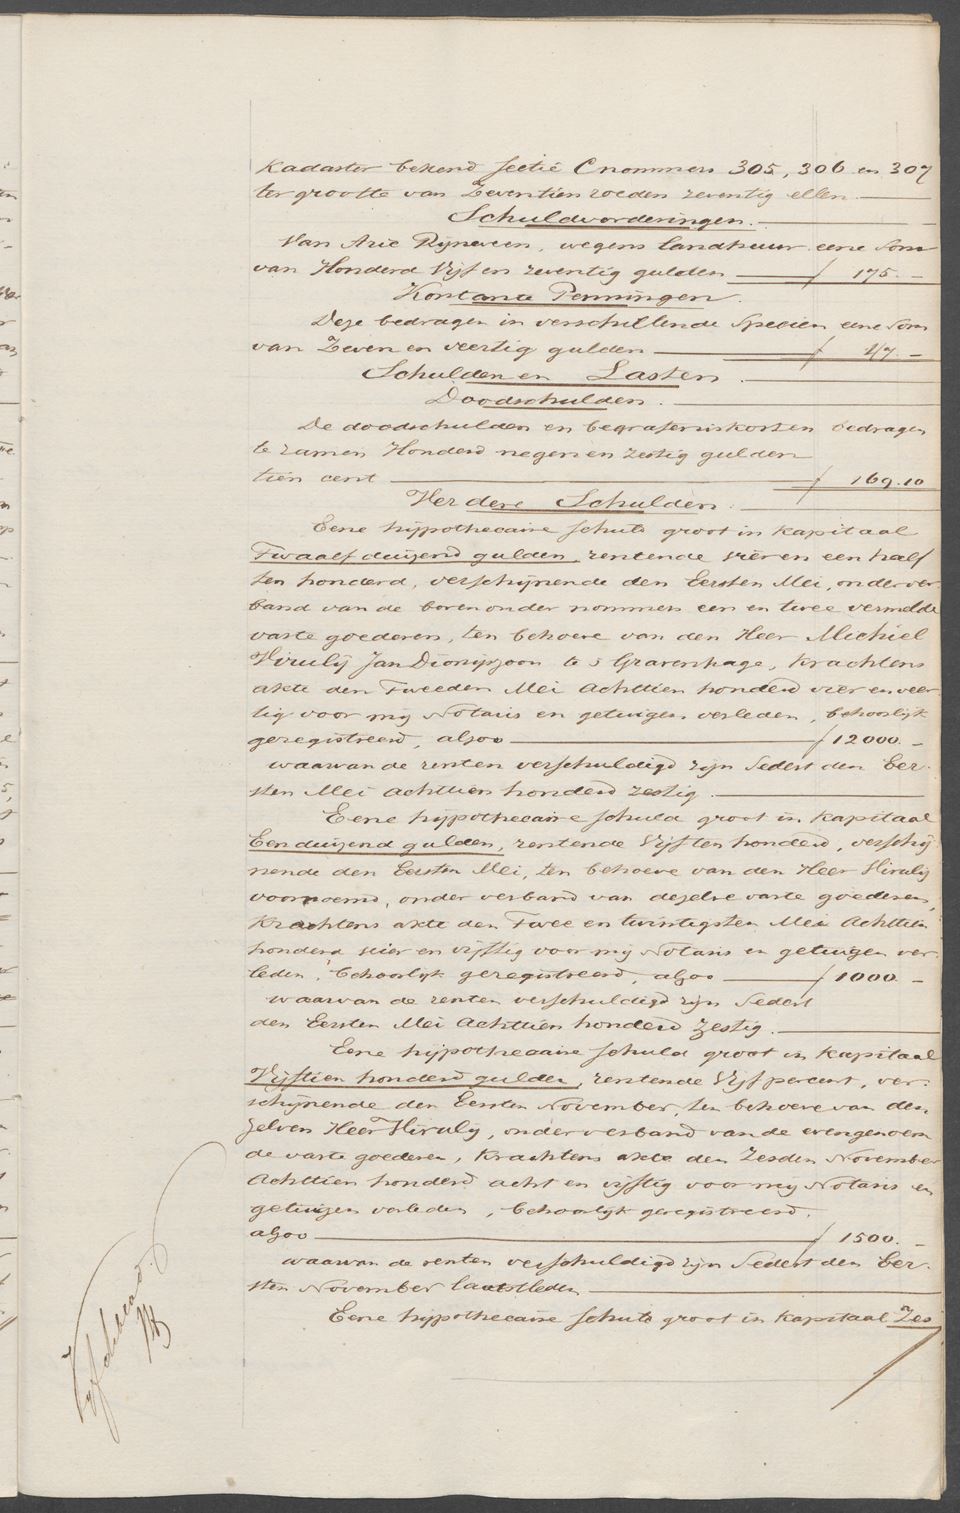 Kadaster bekend sectie C nommers 305, 306 en 307
ter grootte van Zeventien roeden zeventig ellen.
Schuldvorderingen.
Van Arie Rijneveen, wegens landhuur eene Som
van Honderd Vijf en zeventig gulden f 175.-
Kontante Penningen.
Deze bedragen in verschillende Specien eene Som
van Zeven en veertig gulden f 47.-
Schulden en Lasten.
Doodschulden.
De doodschulden en begrafeniskosten bedragen
te zamen Honderd negen en zestig gulden
tien cent f 169.10
Verdere Schulden.
Eene hijpothecaire schuld groot in kapitaal
Twaalf duizend gulden, rentende vier en een half
ten honderd, verschijnende den Eersten Mei, onder ver
band van de boven onder nommers een en twee vermelde
vaste goederen, ten behoeve van den Heer Michiel
Viruly Jan Dionijszoon te s Gravenhage, krachtens
akte den Tweeden Mei Achttien honderd vier en veer
tig voor mij Notaris en getuigen verleden, behoorlijk
geregistreerd, alzoo f 12000.-
waarvan de renten verschuldigd zijn Sedert den Eer-
sten Mei Achttien honderd zestig.
Eene hijpothecaire schuld groot in kapitaal
Eenduizend gulden, rentende Vijf ten honderd, verschij
nende den Eersten Mei, ten behoeve van den Heer Viruly
voornoemd, onder verband van dezelve vaste goederen,
Krachtens akte den Twee en twintigsten Mei Achttien
honderd vier en vijftig voor mij Notaris en getuigen ver
leden, behoorlijk geregistreerd, alzoo f 1000.-
waarvan de renten verschuldigd zijn Sedert
den Eersten Mei Achttien honderd Zestig.
Eene hijpothecaire schuld groot in kapitaal
Vijftien honderd gulden, rentende Vijf percent, ver-
schijnende den Eersten November, ten behoeve van den
zelven Heer Viruly, onder verband van de evengenoem
de vaste goederen, Krachtens akte den Zesden November
Achttien honderd acht en vijftig voor mij Notaris en
getuigen verleden, behoorlijk geregistreerd,
alzoo f 1500.-
waarvan de renten verschuldigd zijn Sedert den Eer-
sten November laatstleden
Eene hijpothecaire schuld groot in kapitaal Zes